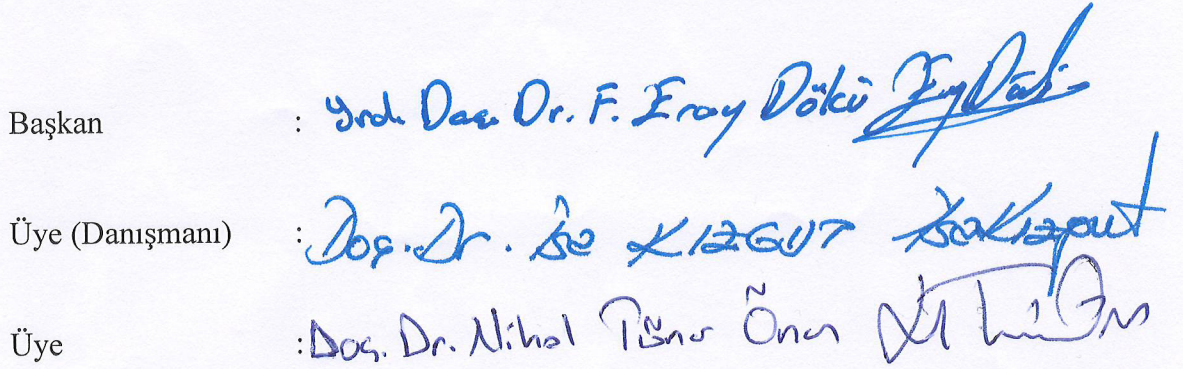 Başkan : Yrd. Doç. Dr. F. Eray Dökü
Üye (Danışmanı) : Doç. Dr. İsa KIZGUT İsa Kızgut
Üye : Doç. Dr. Nihal Tüner Önen